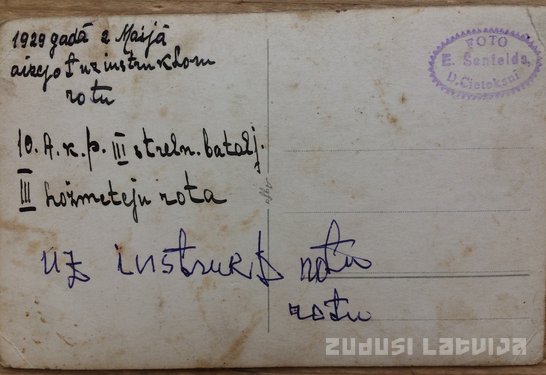 1929 gadā 2 Maijā
aizejot uz instruktoru
rotu
10. A.k.p. III streln. bataļj.
III ložmeteju rota
uz instrukt rotu
rotu
FOTO
E. Senfelds,
D. Cietoksnī
ZUDUSI LATVIJA